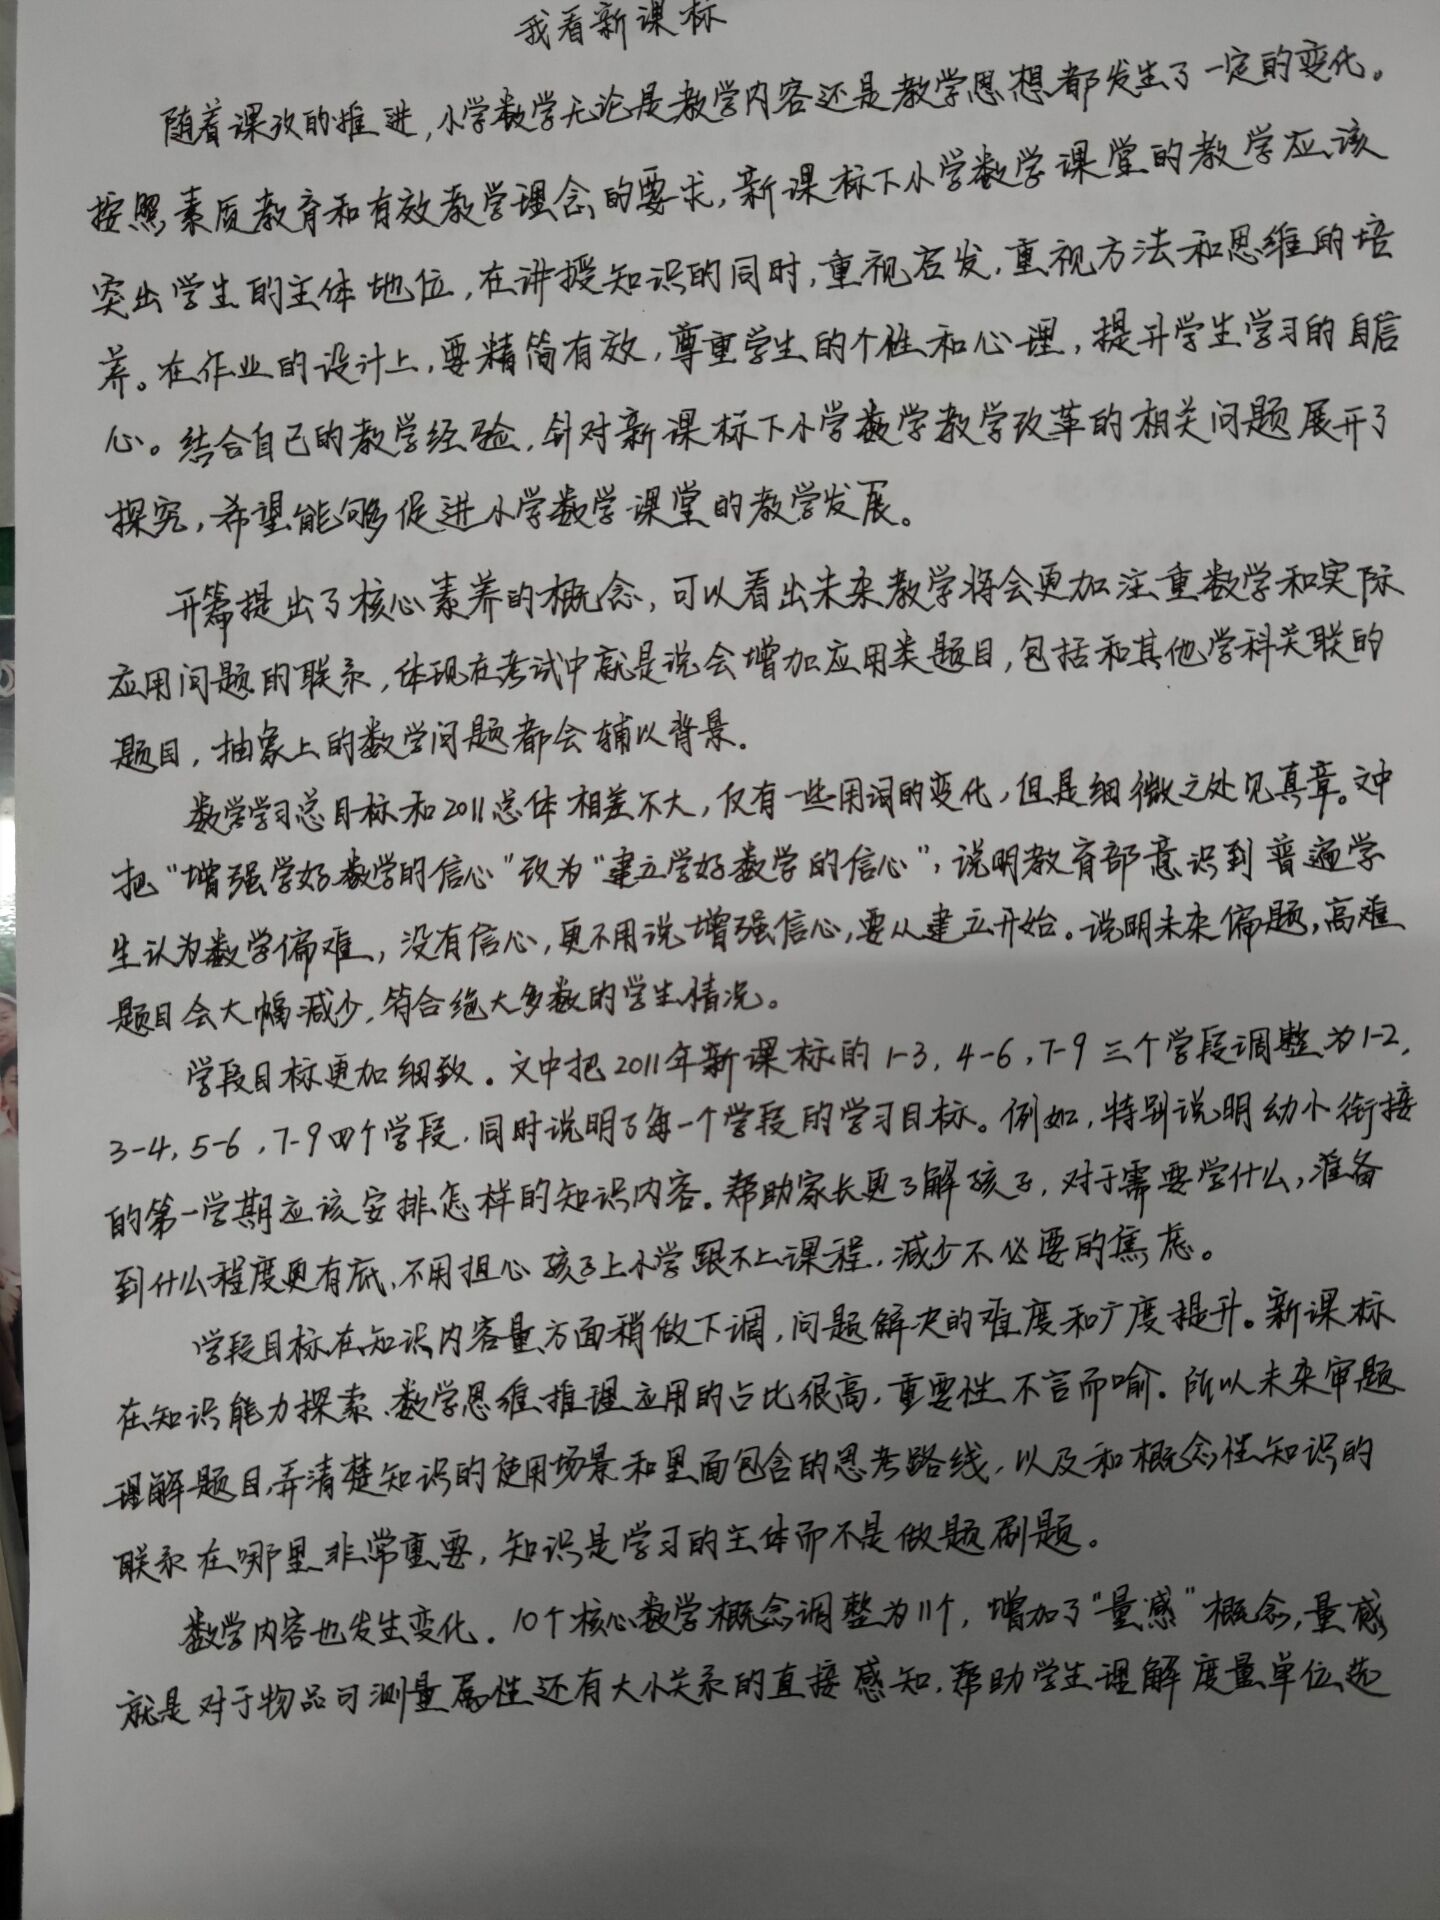 我看新课标
随着课改的推进,小学数学无论是教学内容还是教学思想都发生了一定的变化。
按照素质教育和有效教学理念的要求,新课标下小学数学课堂的教学应该
突出学生的主体地位,在讲授知识的同时,重视启发,重视方法和思维的培
养。在作业的设计上,要精简有效,尊重学生的个性和心理,提升学生学习的自信
心。结合自己的教学经验,针对新课标下小学数学教学改革的相关问题展开了
探究,希望能够促进小学数学课堂的教学发展。
开篇提出了核心素养的概念,可以看出未来教学将会更加注重数学和实际
应用问题的联系,体现在考试中就是说会增加应用类题目,包括和其他学科关联的
题目,抽象上的数学问题都会辅以背景.
数学学习总目标和2011总体相差不大,仅有一些用词的变化,但是细微之处见真章。文中
把“增强学好数学的信心”改为“建立学好数学的信心”,说明教育部意识到普遍学
生认为数学偏难,没有信心,更不用说增强信心,要从建立开始。说明未来偏题,高难
题目会大幅减少,符合绝大多数的学生情况。
学段目标更加细致.文中把2011年新课标的1-3,4-6,7-9三个学段调整为1-2,
3-4,5-6,7-9四个学段,同时说明了每一个学段的学习目标。例如,特别说明幼小衔接
的第一学期应该安排怎样的知识内容。帮助家长更了解孩子,对于需要学什么,准备
到什么程度更有底,不用担心孩子上小学跟不上课程,减少不必要的焦虑。
学段目标在知识内容量方面稍做下调,问题解决的难度和广度提升。新课标
在知识能力探索、数学思维、推理应用的占比很高,重要性不言而喻.所以未来审题
理解题目,弄清楚知识的使用场景和里面包含的思考路线,以及和概念性知识的
联系在哪里非常重要,知识是学习的主体而不是做题刷题。
数学内容也发生变化.10个核心数学概念调整为11个,增加了“量感”概念,量感
就是对于物品可测量属性还有大小关系的直接感知,帮助学生理解度量单位,起